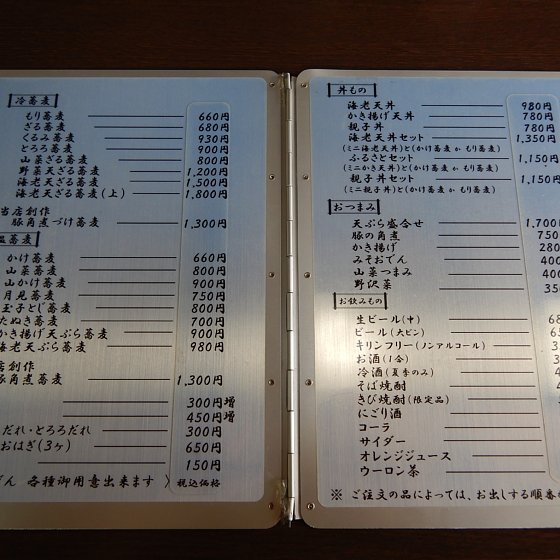 冷蕎麦
もり蕎麦 660円
ざる蕎麦 680円
くるみ蕎麦 930円
とろろ蕎麦 900円
山菜ざる蕎麦 800円
野菜天ざる蕎麦 1,200円
海老天ざる蕎麦 1,500円
海老天ざる蕎麦(上) 1,800円
当店創作
豚角煮づけ蕎麦 1,300円
温蕎麦
かけ蕎麦 660円
山菜蕎麦 800円
山かけ蕎麦 900円
月見蕎麦 750円
玉子とじ蕎麦 800円
たぬき蕎麦 700円
かき揚げ天ぷら蕎麦 900円
海老天ぷら蕎麦 980円
店創作
豚角煮蕎麦 1,300円
300円増
450円増
だれ・とろろだれ 300円
おはぎ(3ヶ) 650円
150円
どん 各種御用意出来ます 〉 税込価格
丼もの
海老天丼 980円
かき揚げ天丼 780円
親子丼 780円
海老天丼セット 1,350円
(ミニ海老天丼)と(かけ蕎麦 か もり蕎麦)
ふるさとセット 1,150円
(ミニかき天丼)と(かけ蕎麦 か もり蕎麦)
親子丼セット 1,150円
(ミニ親子丼)と(かけ蕎麦 か もり蕎麦)
おつまみ
天ぷら盛合せ 1,700
豚の角煮 750
かき揚げ 280
みそおでん 400
山菜つまみ 400
野沢菜 350
お飲みもの
生ビール(中)
ビール(大ビン)
キリンフリー(ノンアルコール)
お酒(1合)
冷酒(夏季のみ)
そば焼酎
きび焼酎(限定品)
にごり酒
コーラ
サイダー
オレンジジュース
ウーロン茶
※ ご注文の品によっては、お出しする順番